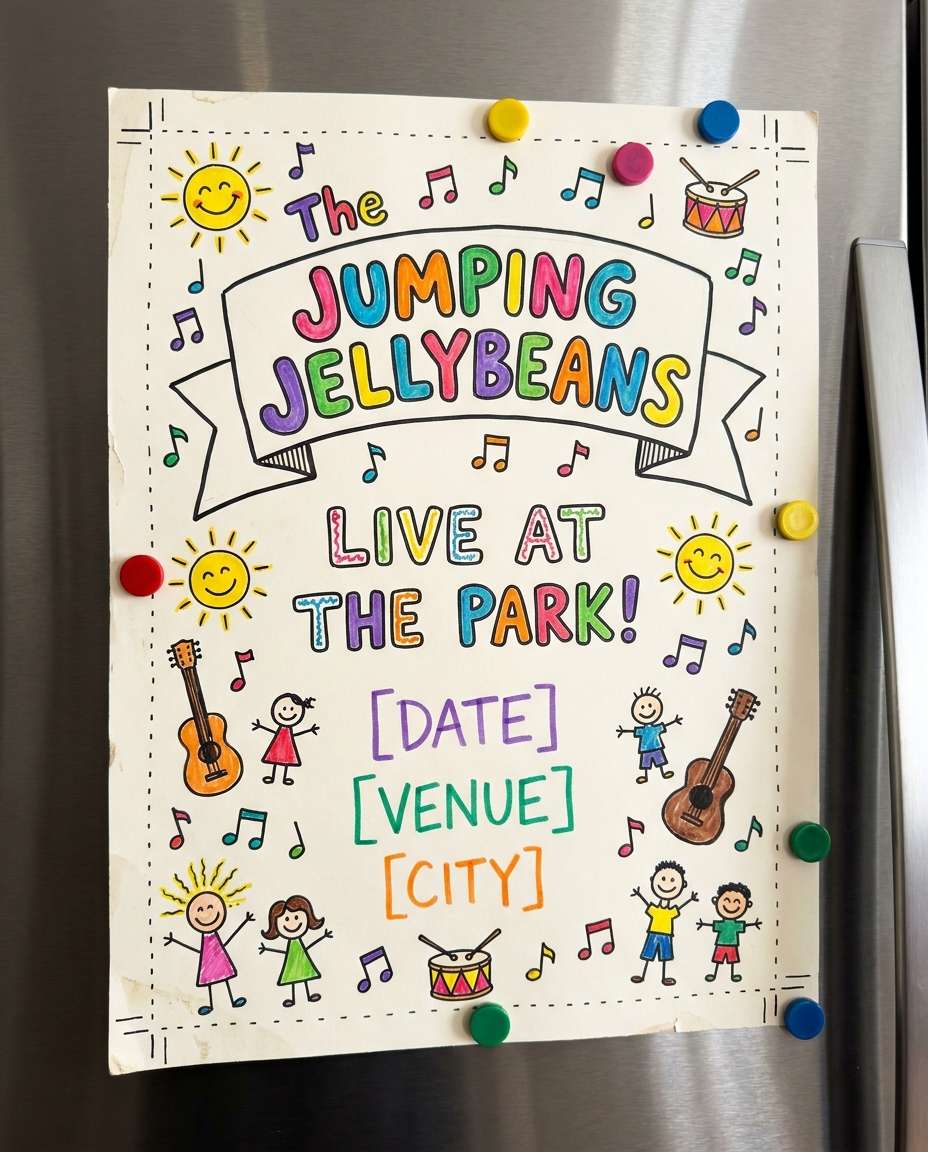 The
JUMPING
JELLYBEANS
LIVE AT
THE PARK!
[DATE]
[VENUE]
[CITY]